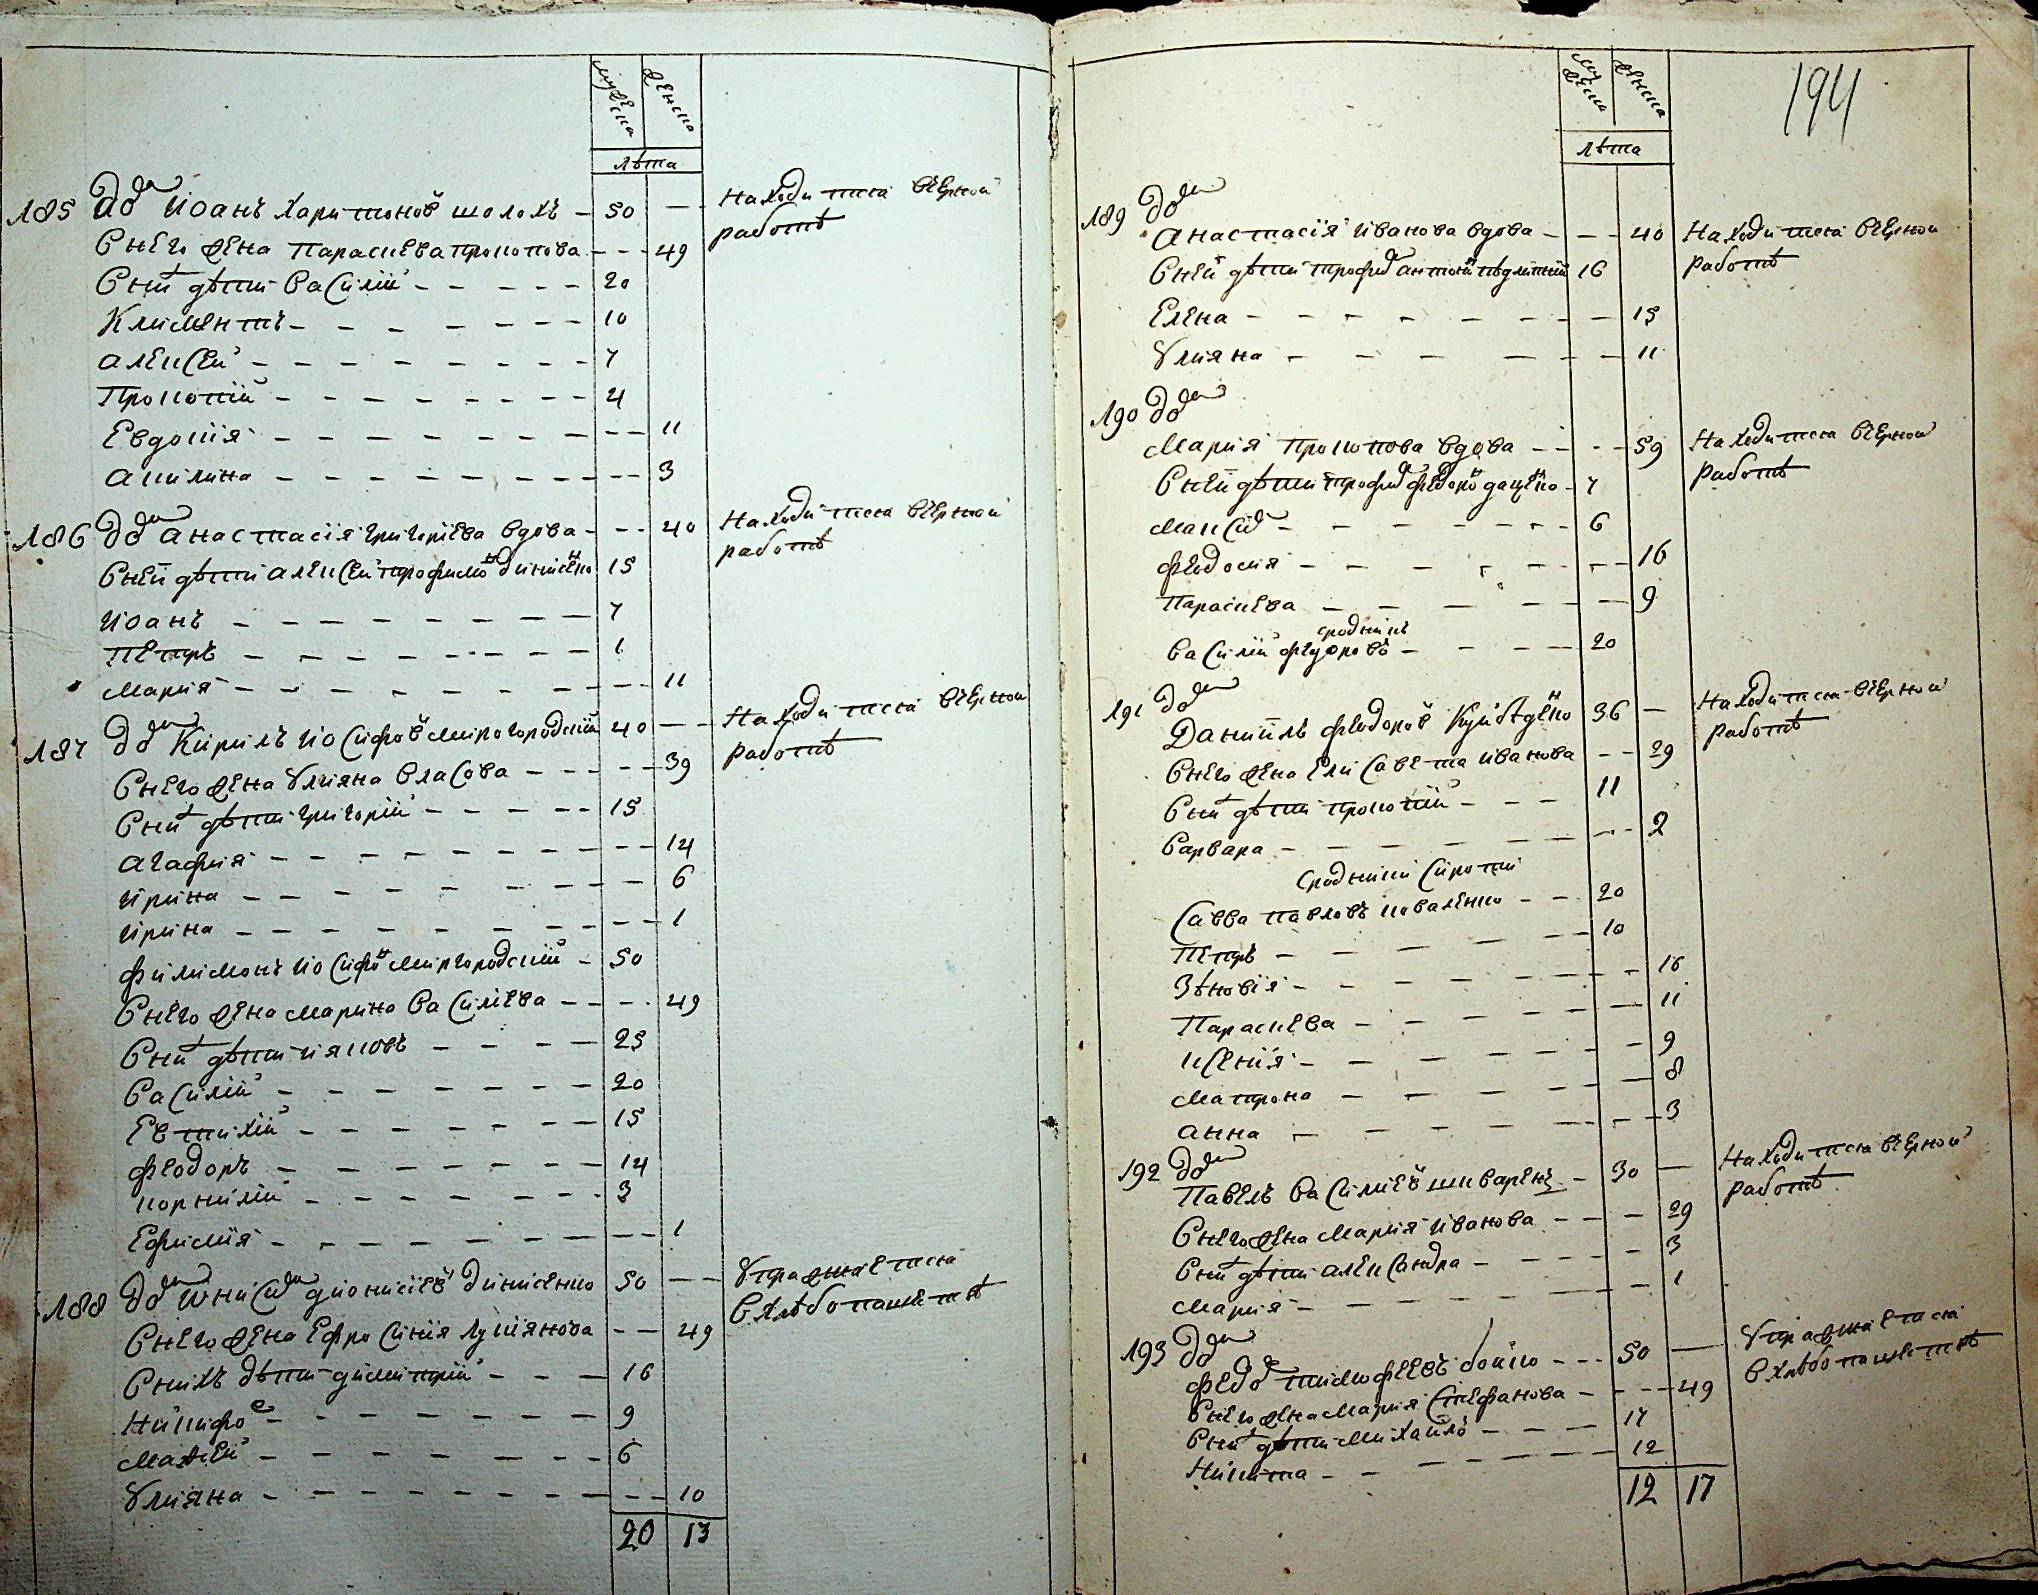 мужеска женска
лѣта
185 До Иоанъ Харитоновъ Шолохъ 50 Находится вчерной
работѣ
Снего жена Параскева Прокопова 49
Снит дѣти Василій 20
Климентъ 10
Алексей 7
Прокопій 4
Евдокія 11
Акилина 3
186 До Анастасія Григоріева вдова 40 Находится вчерной
работѣ
Сней дѣти Алексей Трофимов 15
Иоанъ 7
Петръ 1
Марія 11
187 До Кирилъ Иосифов Миргородскій 40 Находится вчерной
работѣ
Снего жена Улияна Власова 39
Снит дѣти Григорій 15
Агафия 14
Ирина 6
Ирина 1
Филимонъ Иосифов Миргородскій 50
Снего жена Марина Василіева 49
Снит дѣтиИяковъ 25
Василій 20
Евтихій 15
Феодоръ 14
Корнилій 3
Ефимія 1
188 До Дионисіев Динисенко 50 Упражняется
вхлѣбопашествѣ
Снего жена Ефросинія Лукіянова 49
Снихъ дѣти Димитрій 16
Никифо 9
Матѳей 6
Улияна 10
20 13
мужеска женска 194
лѣта
189 До
Анастасія Иванова вдова 40 Находится вчерной
работѣ
Сней дѣти Трофим 16
Елена 15
Улияна 11
190 До
Марія Прокопова вдова 59 Находится вчерной
работѣ
Сней дѣти Трофим 7
Максим 6
Феодосия 16
Параскева 9
сродникъ
Василій Федоров 20
191 До
Даниилъ Феодоров 36 Находится вчерной
работѣ
Снего жена Елисавета Иванова 29
Снит дѣти Прокопій 11
Варвара 2
Сродники сироти
Савва Павловъ Коваленко 20
Петръ 10
Зѣновія 16
Параскева 11
Ксенія 9
Матрона 8
Анна 3
192 До
Павелъ Василіев 30 Находится вчерной
работѣ
Снего жена Марія Иванова 29
Снит дѣти Александра 3
Марія 1
193 До
Федо Тимофеевъ Бойко 50 Упражняется
вхлѣбопашествѣ
Снего жена Марія Стефанова 49
Снит дѣти Михайло 17
Никита 12
12 17